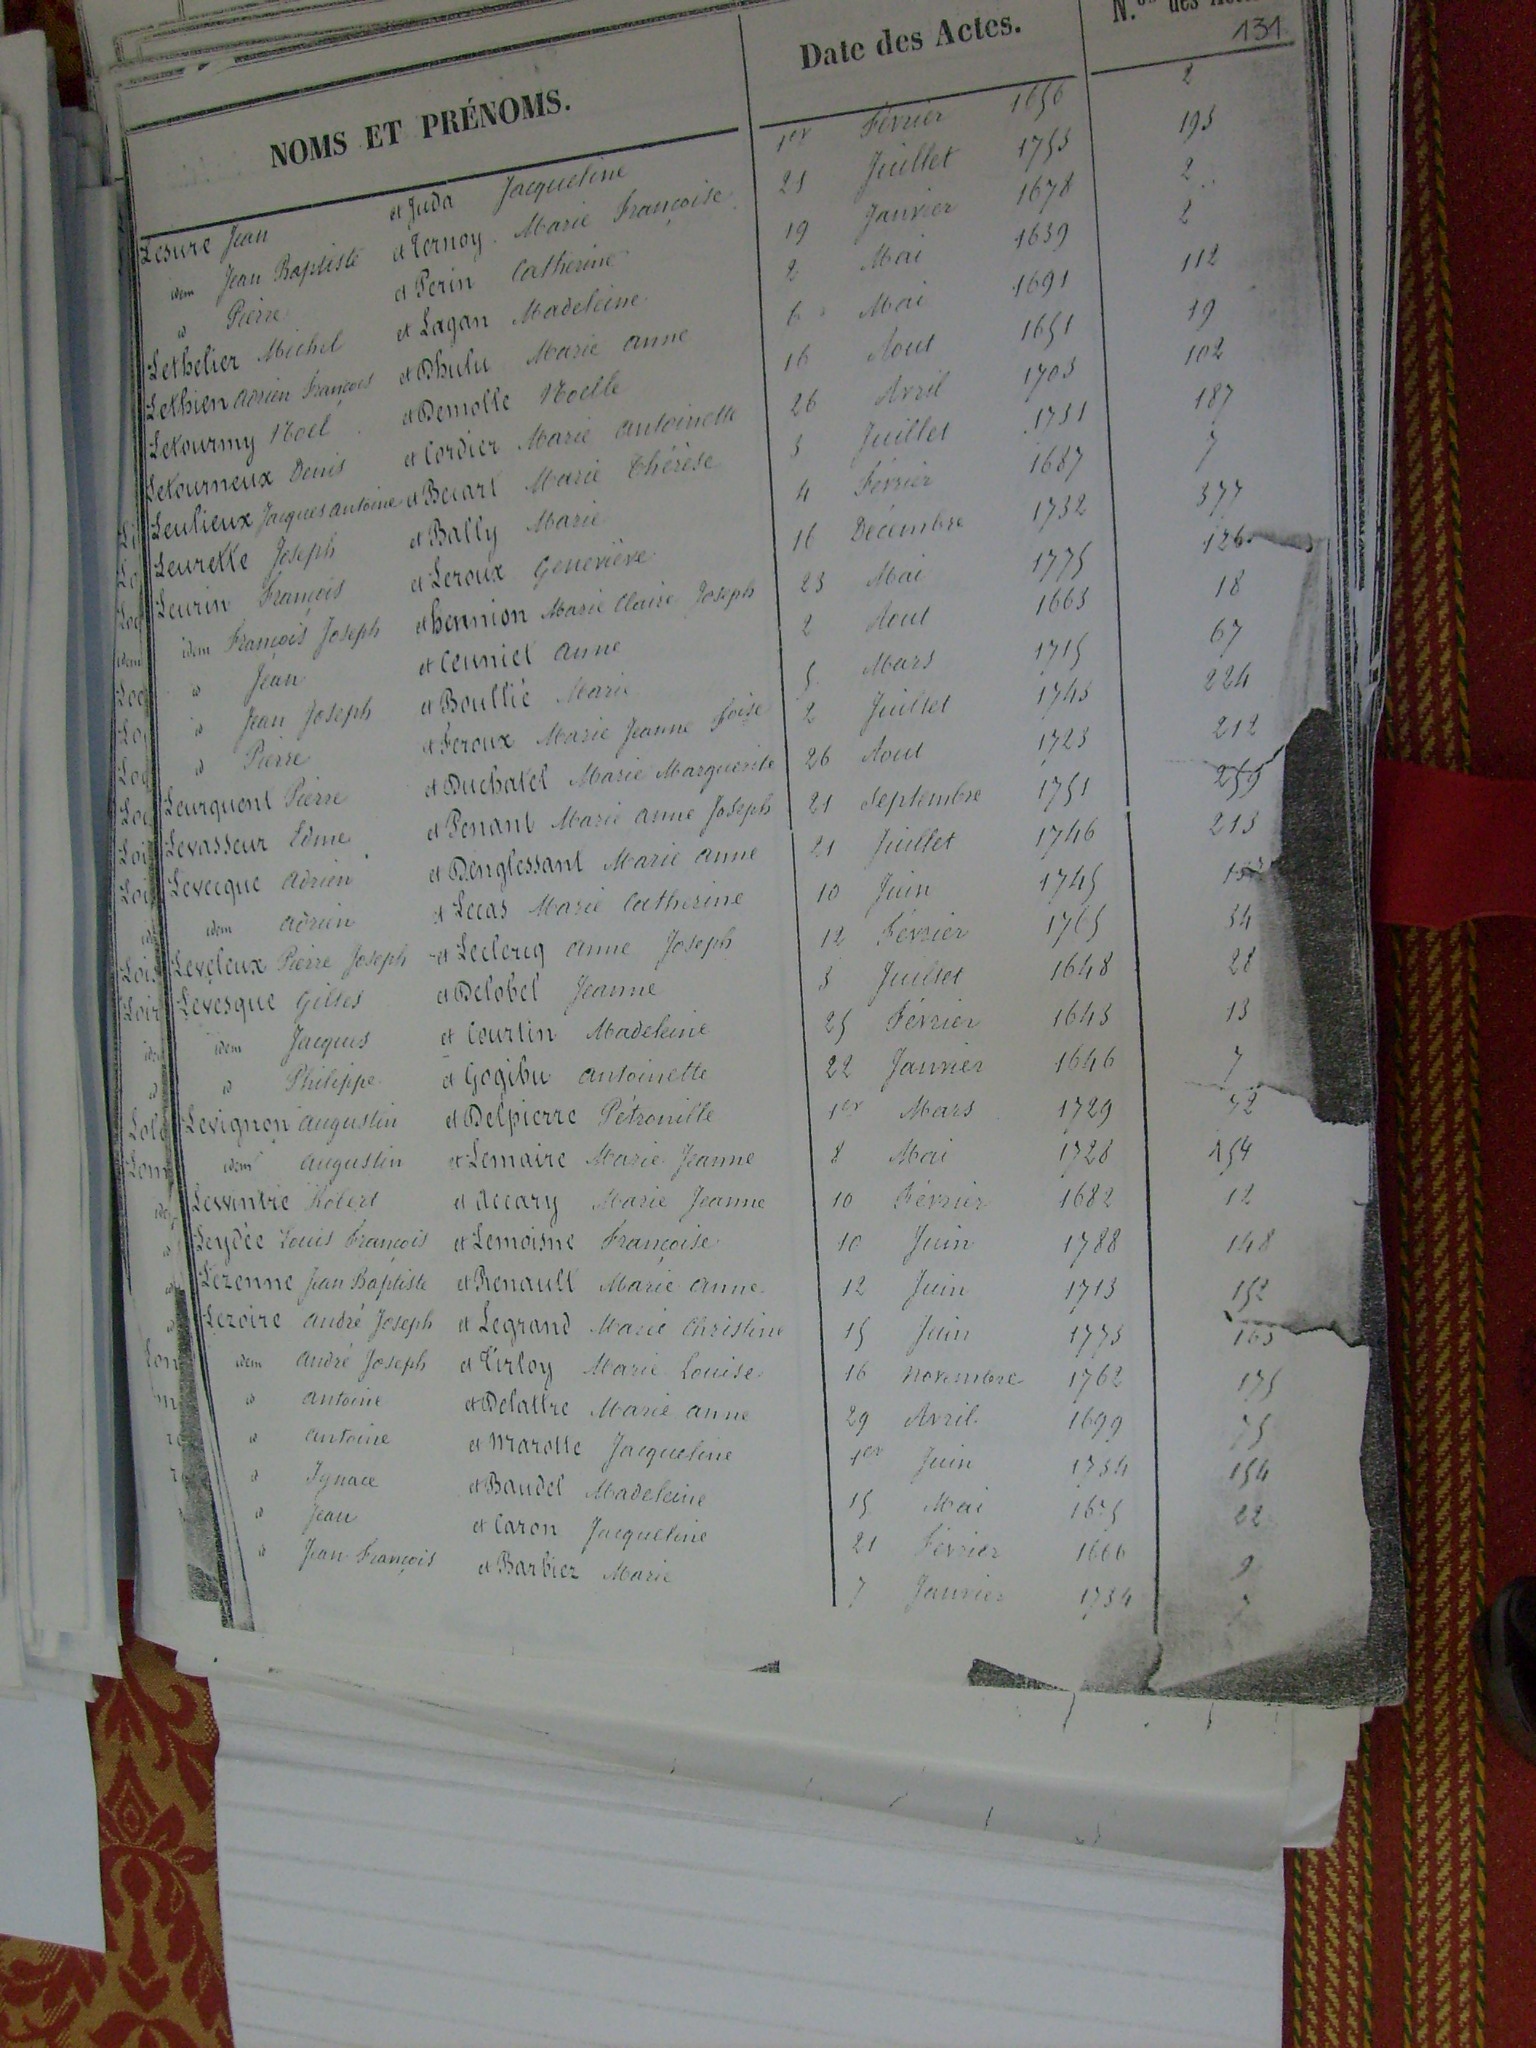 NOMS ET PRÉNOMS. Date des Actes. N.os des
131
Lesure Jean et Juda Jacqueline 1er Février 1656 2
idem Jean Baptiste et Ternoy Marie Françoise 21 Juillet 1753 193
id Pierre et Perin Catherine 19 Janvier 1678 2
Lethelier Michel et Lagan Madeleine 2 Mai 1639 2
Lethien Adrien François et Dhulu Marie Anne 6 Mai 1691 112
Letourmy Noel et Demolle Noelle 16 Aout 1651 19
Letourneux Denis et Cordier Marie Antoinette 26 Avril 1703 102
Leulieux Jacques Antoine et Becart Marie Thérèse 3 Juillet 1751 187
Leurette Joseph et Bally Marie 4 Février 1687 7
Leurin François et Leroux Geneviève 16 Décembre 1732 377
idem François Joseph et hennion Marie Claire Joseph 23 Mai 1775 126
id Jean et Ceuniet Anne 2 Aout 1663 18
id Jean Joseph et Boullie Marie 5 Mars 1715 67
id Pierre et Feroux Marie Jeanne foise 2 Juillet 1743 224
Leurquent Pierre et Duchatel Marie Marguerite 26 Aout 1723 212
Levasseur Edme et Penant Marie Anne Joseph 21 Septembre 1751 259
Levecque Adrien et Denglessant Marie Anne 21 Juillet 1746 213
idem Adrien et Lecas Marie Catherine 10 Juin 1745
Leveleux Pierre Joseph et Leclercq Anne Joseph 12 Février 1765 34
Levesque Gilles et Delobel Jeanne 3 Juillet 1648 28
idem Jacques et Courtin Madeleine 25 Février 1643 13
id Philippe et Gogibu Antoinette 22 Janvier 1646 7
Levignon Augustin et Delpierre Pétronille 1er Mars 1729 72
idem Augustin et Lemaire Marie Jeanne 8 Mai 1728 154
Lewintre Robert et Accary Marie Jeanne 10 Février 1682 12
Leydée Louis François et Lemoisne Françoise 10 Juin 1788 148
Lezenne Jean Baptiste et Renault Marie Anne 12 Juin 1713 152
Lezoire André Joseph et Legrand Marie Christine 15 Juin 1773 163
idem André Joseph et Tirloy Marie Louise 16 Novembre 1762 175
id Antoine et Delattre Marie Anne 29 Avril 1699 75
id Antoine et Marolle Jacqueline 1er Juin 1734 154
id Ignace et Baudel Madeleine 15 Mai 1675 22
id Jean et Caron Jacqueline 21 Février 1666 9
id Jean François et Barbier Marie 7 Janvier 1734 7